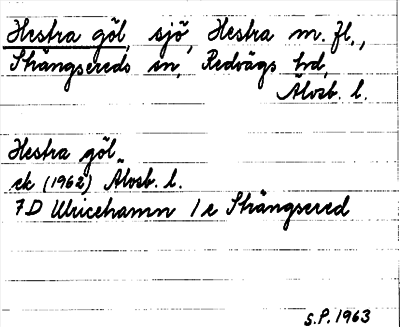 Hestra göl, sjö, Hestra m. fl.,
Strängsereds sn, Redvägs hd,
Älvsb. l.
Hestra göl
ek (1962) Älvsb. l.
7D Ulricehamn 1e Strängsered
S.P. 1963